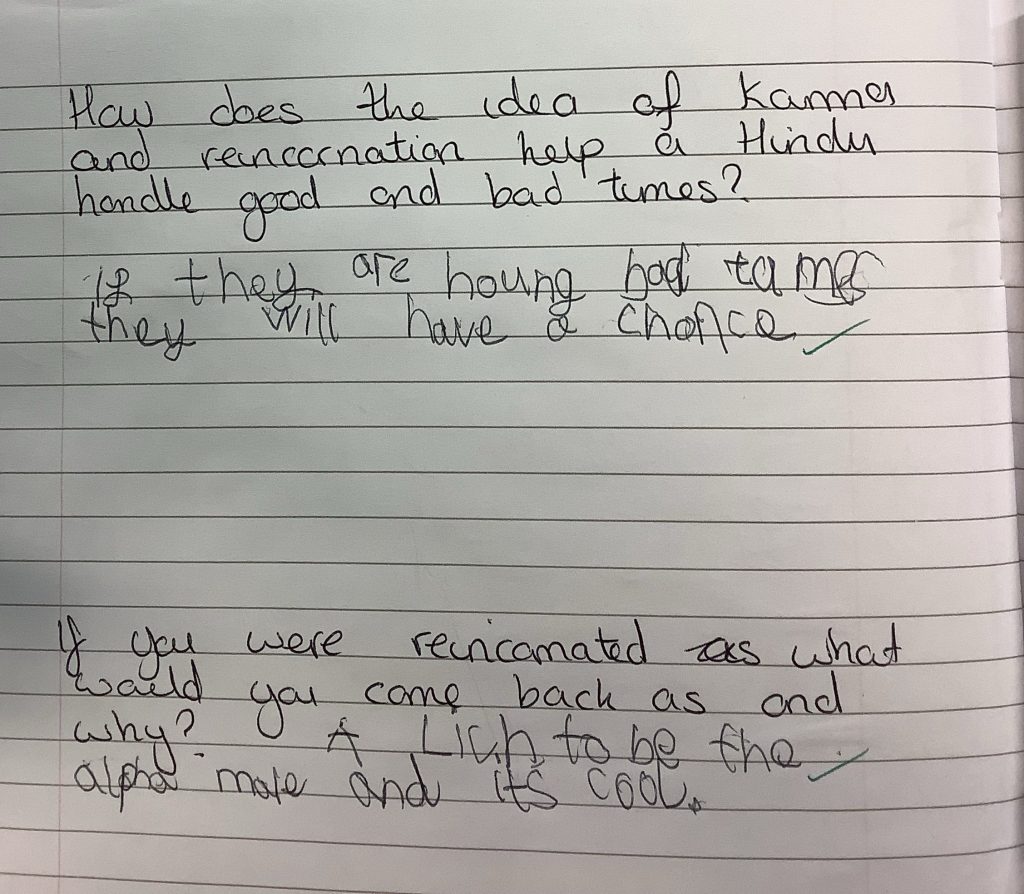 How does the idea of Karma
and reincarnation help a Hindu
handle good and bad times?
if they are houng bad tames
they will have a chance
If you were reincarnated as what
would you come back as and
why? A Lion to be the
alpha male and it's cool.